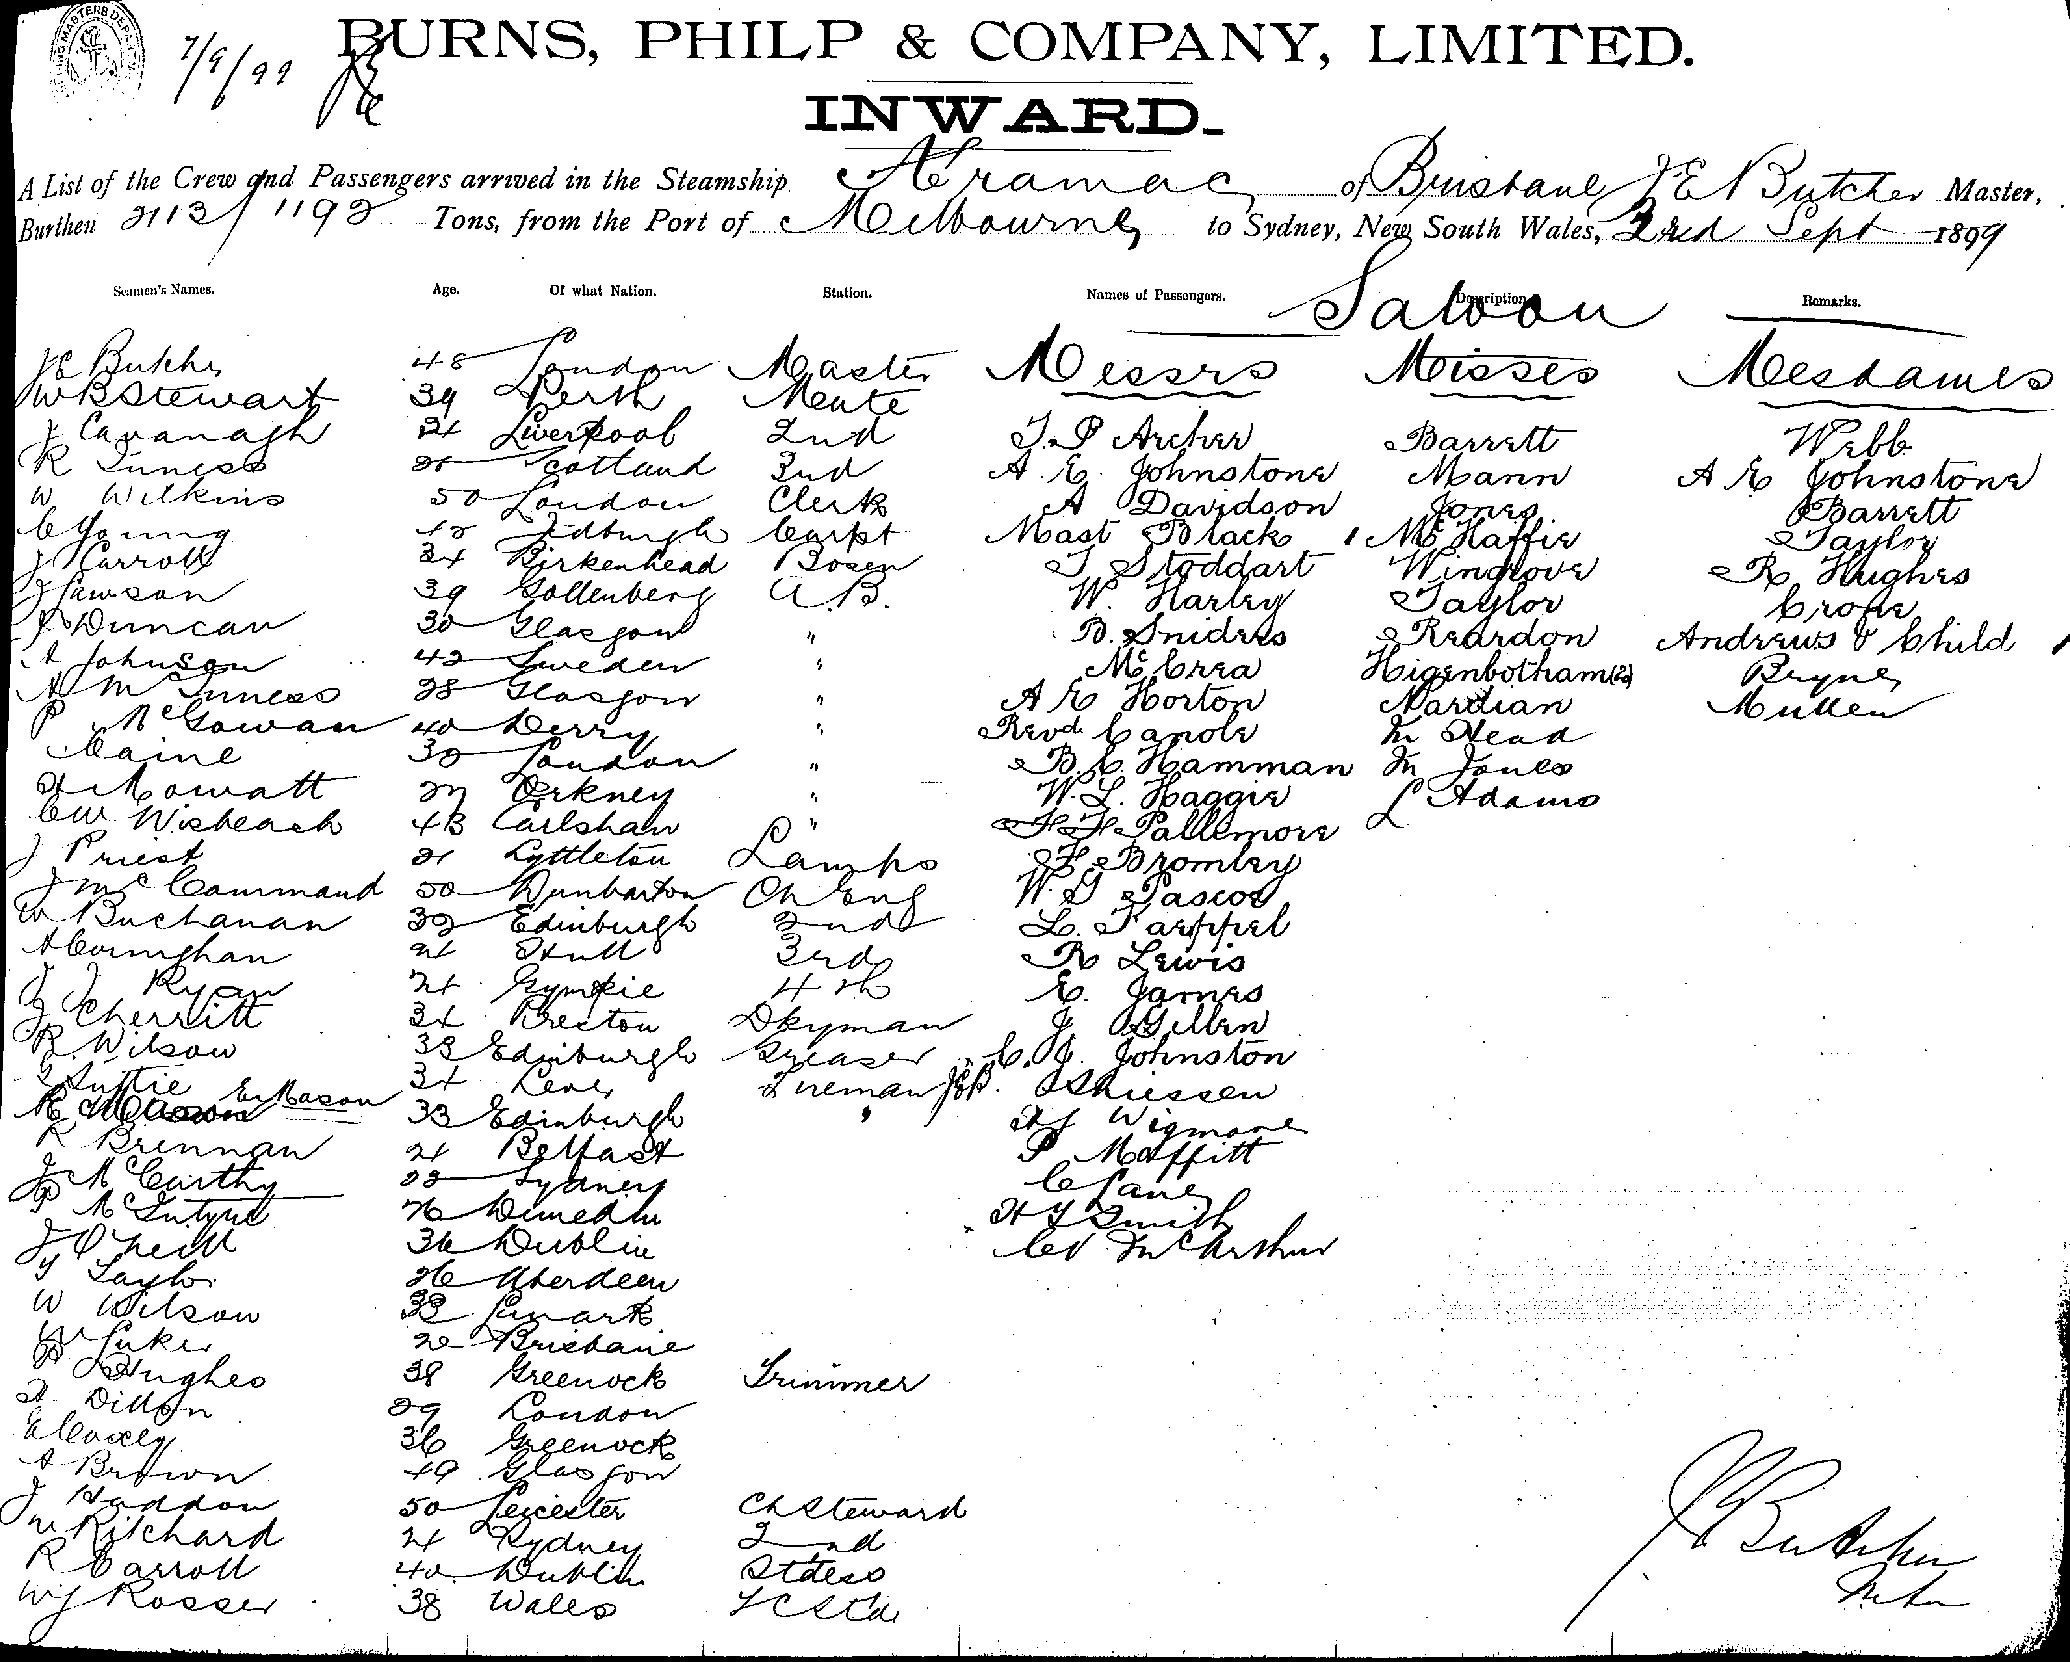 7/9/99
BURNS, PHILP & COMPANY, LIMITED.
INWARD.
A List of the Crew and Passengers arrived in the Steamship Aramac of Brisbane J E Butcher Master,
Burthen 2113/1192 Tons, from the Port of Melbourne to Sydney, New South Wales, 3rd Sept 1899
Seamen's Names. Age. Of what Nation. Station. Names of Passengers. Description. Remarks.
Saloon
J E Butcher 48 London Master Messrs Misses Mesdames
W B Stewart 39 Perth Mate
J Cavanagh 24 Liverpool 2nd T. P Archer Barrett Webb
R Inness Scotland 3rd A. E. Johnstone Mann A E Johnstone
W Wilkins 50 London Clerk A Davidson Jones Barrett
C Young Jedburgh Carpt Mast Black 1 McHaffie Taylor
J Carroll 34 Birkenhead Bosen T Stoddart Wingrove R Hughes
J Lawson 39 Gottenberg A.B. W. Harley Taylor Crone
J Duncan 30 Glasgow " B. Sniders Reardon Andrews & Child 1
A Johnson 42 Sweden " McCrea Higenbotham (2) Bryne
A McInness 28 Glasgow " A E Horton Mardian Mullen
P McGowan 40 Derry " Revd Canole M Head
Caine 30 London " B. C. Hamman M Jones
Mowatt Orkney " W. L. Haggie L Adams
C W Wisbeach 43 Carlshaw " Pallemore
J Priest 21 Lyttleton Lamps F. Bromley
J McCommand 50 Dunbarton Ch Eng W. G Pascoe
W Buchanan 32 Edinburgh 2nd L. Kaeppel
A Cornighan 24 Hull 3rd R Lewis
J J Ryan 24 Gympie 4th E. James
J Cherritt 34 Preston Dkyman J. Gillen
R Wilson 33 Edinburgh Greaser C. J. Johnston
J Suttie 34 Leven Fireman JEB. Thiessen
E Mason 33 Edinburgh " H J Wigmore
R Brennan 24 Belfast P Moffitt
J McCarthy 22 Sydney C Lane
P McIntyre 26 Dunedin H G Smith
J O'Neill 36 Dublin McArthur
G Taylor 26 Aberdeen
W Wilson 33 Lanark
W Luke Brisbane
P Hughes 38 Greenock Trimmer
H Dillon 29 London
E Coxey 36 Greenock
A Brown 49 Glasgow
J Haddon 50 Leicester Ch Steward
M Ritchard 24 Sydney 2nd
R Carroll 40 Dublin Stdess
W J Rosser 38 Wales F C Std
J E Butcher